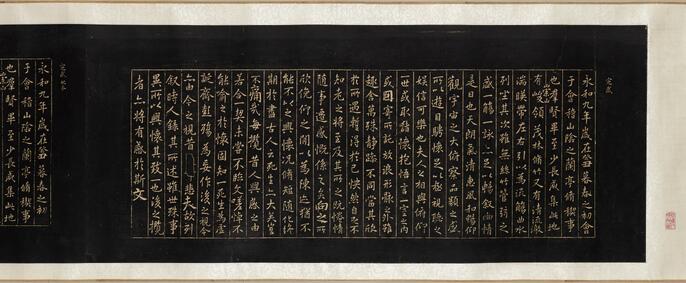 定武
永和九年歲在癸丑暮春之初會
于會稽山陰之蘭亭脩稧事
也群賢畢至少長咸集此地
有崇山峻領茂林脩竹又有清流激
湍暎帶左右引以為流觴曲水
列坐其次雖無絲竹管弦之
盛一觴一詠亦足以暢敘幽情
是日也天朗氣清惠風和暢仰
觀宇宙之大俯察品類之盛
所以遊目騁懷足以極視聽之
娛信可樂也夫人之相與俯仰
一世或取諸懷抱悟言一室之內
或因寄所託放浪形骸之外雖
趣舍萬殊靜躁不同當其欣
於所遇蹔得於己快然自足不
知老之將至及其所之既惓情
隨事遷感慨係之矣向之所
欣俛仰之閒以為陳迹猶不
能不以之興懷況脩短隨化終
期於盡古人云死生亦大矣豈
不痛哉每攬昔人興感之由
若合一契未嘗不臨文嗟悼不
能喻之於懷固知一死生為虛
誕齊彭殤為妄作後之視今
亦由今之視昔悲夫故列
敘時人錄其所述雖世殊事
異所以興懷其致一也後之攬
者亦將有感於斯文
定武
永和九年歲在癸丑暮春之初會
于會稽山陰之蘭亭脩稧事
也群賢畢至少長咸集此地